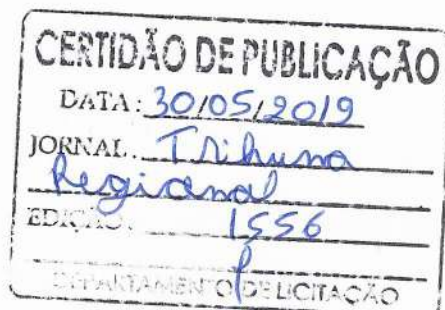 CERTIDÃO DE PUBLICAÇÃO
DATA: 30/05/2019
JORNAL. Tribuna
Regional
EDIÇÃO. 1556
DEPARTAMENTO DE LICITAÇÃO